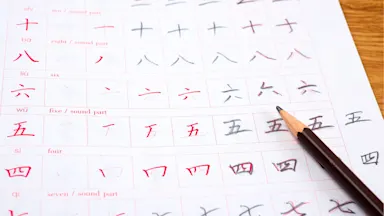 / sound part
十 一 十 十 十 十 十
eight / sound part
八 丿 八 八 八 八 八
six
六 丶 亠 六 六 六
wǔ five / sound part
五 一 丅 五 五 五 五
sì four
四 丨 冂 四 四 四 四
qī seven / sound part